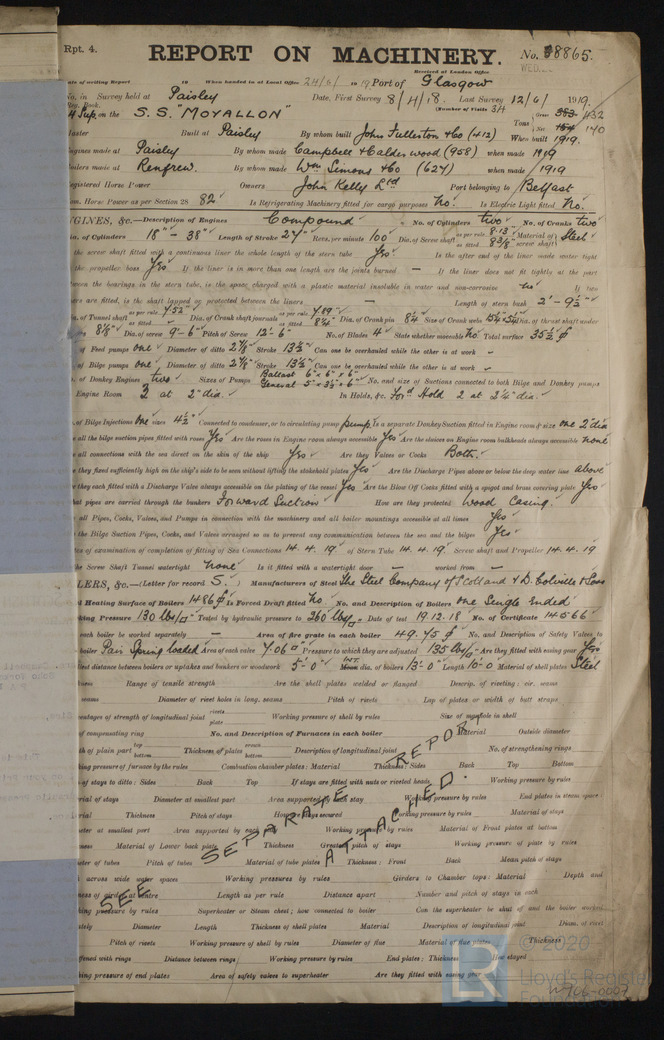 Rpt. 4. REPORT ON MACHINERY. No. 38865.
WED.
Received at London Office
of writing Report 19 When handed in at Local Office 24/6/ 19 19 Port of Glasgow
No. in Survey held at Paisley Date, First Survey 8/4/18. Last Survey 12/6/ 1919.
Reg. Book. (Number of Visits 34
Sup. on the S.S. "MOYALLON" Tons Gross 383 432 Net 164 140
Built at Paisley By whom built John Fullerton & Co (412) When built 1919.
Engines made at Paisley By whom made Campbell & Calderwood (958) when made 1919
Boilers made at Renfrew. By whom made Wm Simons & Co (627) when made 1919
Registered Horse Power Owners John Kelly Ltd Port belonging to Belfast
Nom. Horse Power as per Section 28 82 Is Refrigerating Machinery fitted for cargo purposes No. Is Electric Light fitted No.
ENGINES, &c.—Description of Engines Compound No. of Cylinders two No. of Cranks two
Dia. of Cylinders 18" - 38" Length of Stroke 27" Revs. per minute 100 Dia. of Screw shaft as per rule 8.13" as fitted 8 3/8" Material of screw shaft Steel
the screw shaft fitted with a continuous liner the whole length of the stern tube Yes Is the after end of the liner made water tight
the propeller boss Yes If the liner is in more than one length are the joints burned — If the liner does not fit tightly at the part
between the bearings in the stern tube, is the space charged with a plastic material insoluble in water and non-corrosive no If two
liners are fitted, is the shaft lapped or protected between the liners — Length of stern bush 2' - 9 1/2"
Dia. of Tunnel shaft as per rule 7.52" as fitted Dia. of Crank shaft journals as per rule 7.89" as fitted 8 1/4" Dia. of Crank pin 8 1/4 Size of Crank webs Dia. of thrust shaft under
8 1/8" Dia. of screw 9' - 6" Pitch of Screw 12' - 6" No. of Blades 4 State whether moveable No Total surface 35 1/2 ф
of Feed pumps one Diameter of ditto 2 7/8" Stroke 13 1/2" Can one be overhauled while the other is at work
of Bilge pumps one Diameter of ditto 2 7/8" Stroke 13 1/2" Can one be overhauled while the other is at work
of Donkey Engines two Sizes of Pumps Ballast 6" x 6" x 6" General 5" x 3 1/2" x 6" No. and size of Suctions connected to both Bilge and Donkey pumps
Engine Room 3 at 2" dia. In Holds, &c. Ford Hold 2 at 2 1/4" dia.
of Bilge Injections one sizes 4 1/2" Connected to condenser, or to circulating pump pump Is a separate Donkey Suction fitted in Engine room & size one 2" dia
all the bilge suction pipes fitted with roses Yes Are the roses in Engine room always accessible Yes Are the sluices on Engine room bulkheads always accessible none
all connections with the sea direct on the skin of the ship Yes Are they Valves or Cocks Both.
they fixed sufficiently high on the ship's side to be seen without lifting the stokehold plates Yes Are the Discharge Pipes above or below the deep water line above
they each fitted with a Discharge Valve always accessible on the plating of the vessel Yes Are the Blow Off Cocks fitted with a spigot and brass covering plate Yes
What pipes are carried through the bunkers Forward Suction How are they protected Wood Casing.
all Pipes, Cocks, Valves, and Pumps in connection with the machinery and all boiler mountings accessible at all times Yes
the Bilge Suction Pipes, Cocks, and Valves arranged so as to prevent any communication between the sea and the bilges Yes
Dates of examination of completion of fitting of Sea Connections 14.4.19 of Stern Tube 14.4.19. Screw shaft and Propeller 14.4.19
the Screw Shaft Tunnel watertight none Is it fitted with a watertight door — worked from —
BOILERS, &c.—(Letter for record S.) Manufacturers of Steel The Steel Company of Scotland & D. Colville & Sons
Total Heating Surface of Boilers 1486 ф Is Forced Draft fitted No. No. and Description of Boilers one Single Ended
Working Pressure 130 lbs/□" Tested by hydraulic pressure to 260 lbs/□" Date of test 19.12.18 No. of Certificate 14566
each boiler be worked separately — Area of fire grate in each boiler 49.45 ф No. and Description of Safety Valves to
boiler Pair Spring loaded Area of each valve 7.06 □" Pressure to which they are adjusted 135 lbs/□" Are they fitted with easing gear Yes
Smallest distance between boilers or uptakes and bunkers or woodwork 5' - 0" INT. Mean dia. of boilers 13' - 0" Length 10' - 0 Material of shell plates Steel
Range of tensile strength Are the shell plates welded or flanged Descrip. of riveting: cir. seams
seams Diameter of rivet holes in long. seams Pitch of rivets Lap of plates or width of butt straps
percentages of strength of longitudinal joint rivets plate Working pressure of shell by rules Size of manhole in shell
of compensating ring No. and Description of Furnaces in each boiler Material Outside diameter
Length of plain part top bottom Thickness of plates crown bottom Description of longitudinal joint No. of strengthening rings
Working pressure of furnace by the rules Combustion chamber plates: Material Thickness: Sides Back Top Bottom
of stays to ditto: Sides Back Top If stays are fitted with nuts or riveted heads Working pressure by rules
Material of stays Diameter at smallest part Area supported by each stay Working pressure by rules End plates in steam space:
Material Thickness Pitch of stays How are stays secured Working pressure by rules Material of stays
Diameter at smallest part Area supported by each Working pressure by rules Material of Front plates at bottom
Thickness Material of Lower back plate Thickness Greatest pitch of stays Working pressure of plate by rules
Diameter of tubes Pitch of tubes Material of tube plates Thickness: Front Back Mean pitch of stays
across wide water spaces Working pressures by rules Girders to Chamber tops: Material Depth and
thickness of girder at centre Length as per rule Distance apart Number and pitch of stays in each
Working pressure by rules Superheater or Steam chest; how connected to boiler Can the superheater be shut off and the boiler worked
separately Diameter Length Thickness of shell plates Material Description of longitudinal joint Diam. of rivet
Pitch of rivets Working pressure of shell by rules Diameter of flue Material of flue plates Thickness
stiffened with rings Distance between rings Working pressure by rules End plates: Thickness How stayed
Working pressure of end plates Area of safety valves to superheater Are they fitted with easing gear
SEE SEPARATE REPORT ATTACHED.
© 2020
Lloyd's Register
Foundation
W706-0007